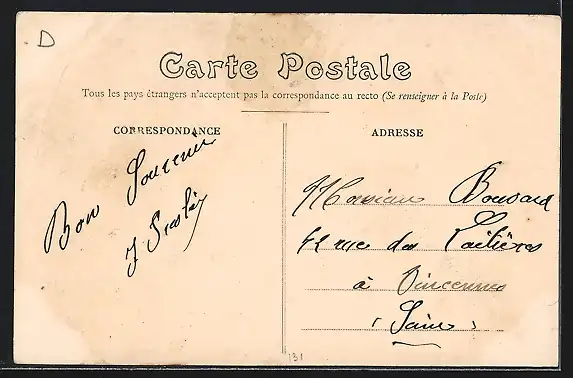 D
Carte Postale
Tous les pays étrangers n'acceptent pas la correspondance au recto (Se renseigner à la Poste)
CORRESPONDANCE
ADRESSE
Bon Souvenir
J
Monsieur Bouvard
rue des Laitières
à Vincennes
(Seine)
131